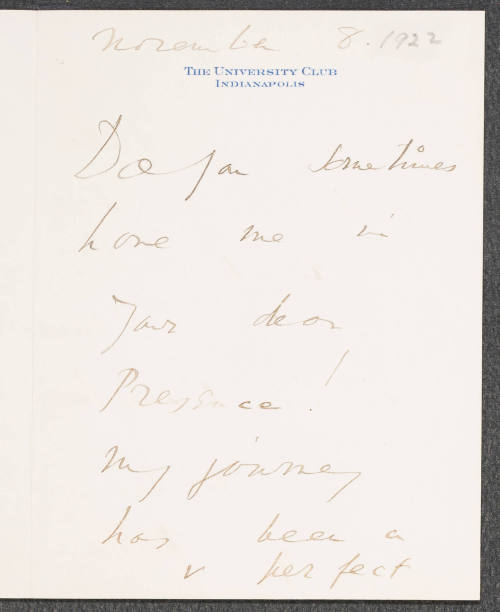 November 8. 1922
THE UNIVERSITY CLUB
INDIANAPOLIS
Do you sometimes
have me in
your dear
Presence!
my journey
has been a
v perfect